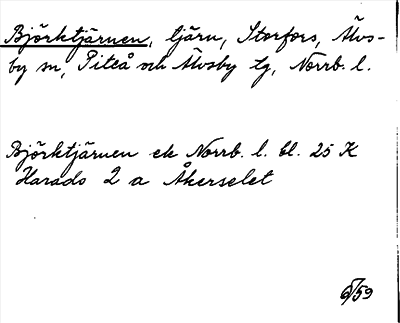 Björktjärnen, tjärn, Storfors, Älvs-
by sn, Piteå och Älvsby tg, Norrb. l.
Björktjärnen ek Norrb. l. bl. 25 K
Harads 2 a Åkerselet
6/59